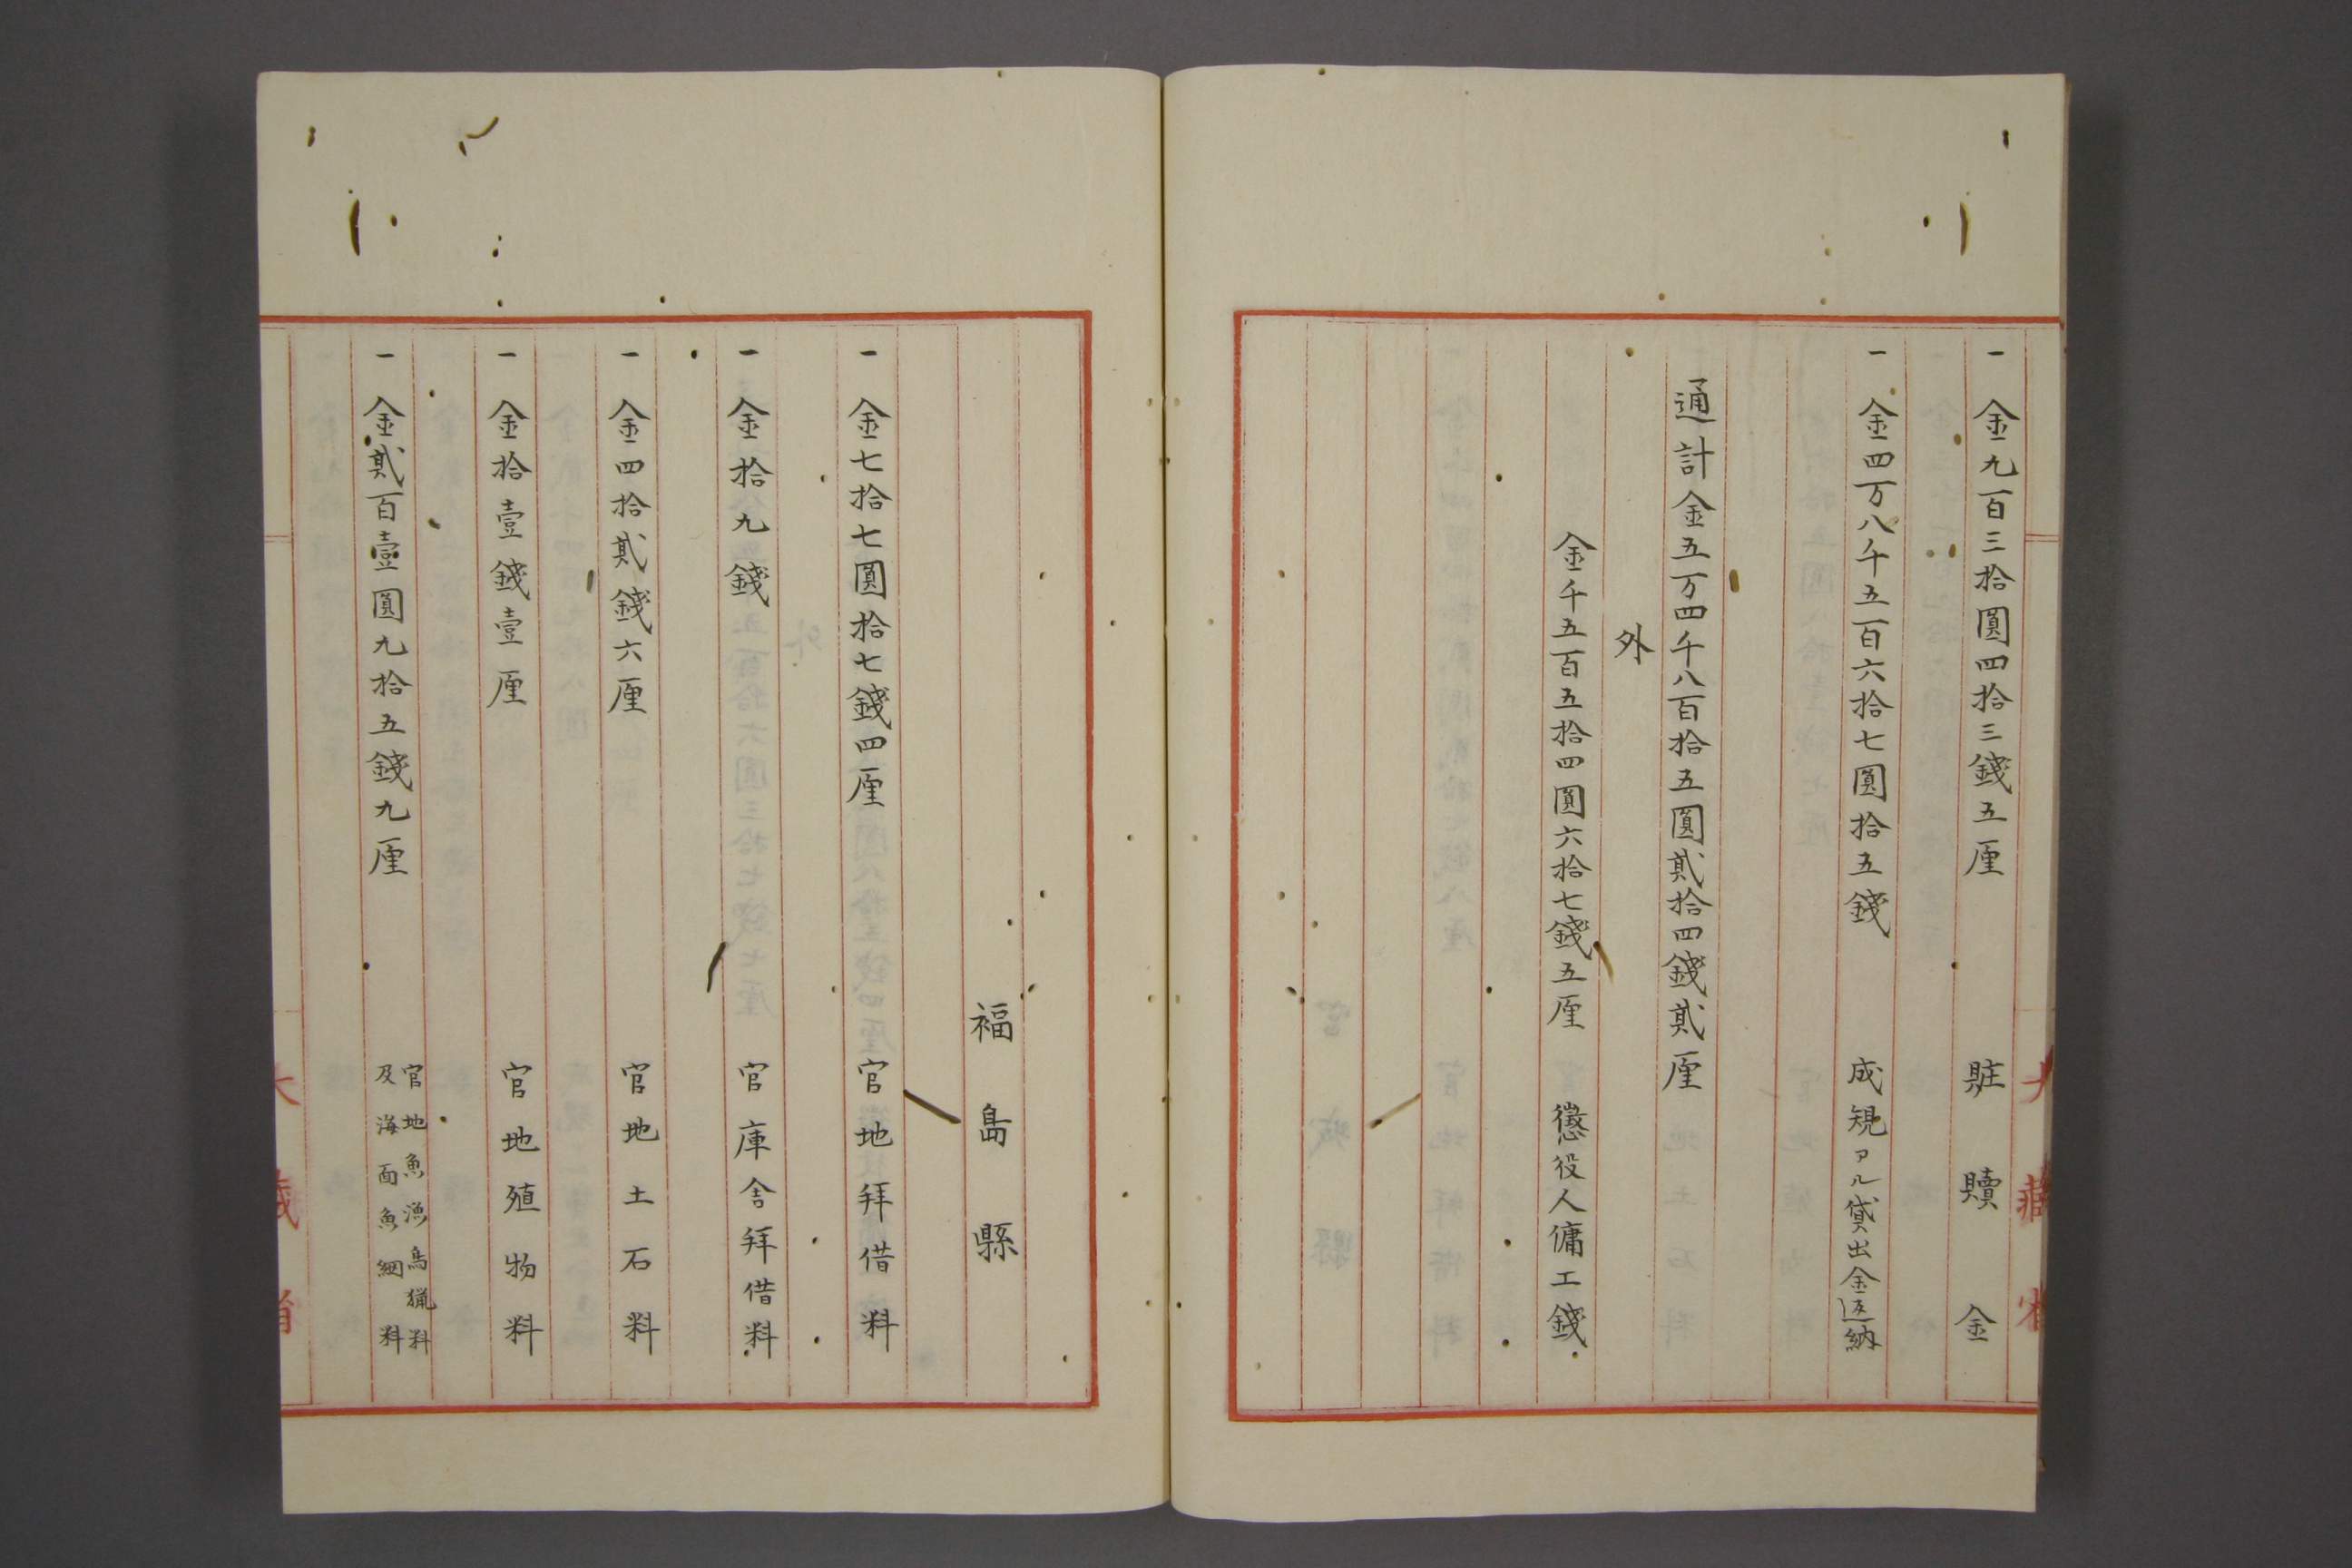 一金九百三拾圓四拾三錢五厘 贓贖金
一金四万八千五百六拾七圓拾五錢 成規アル貸出金返納
通計金五万四千八百拾五圓貳拾四錢貳厘
外
金千五百五拾四圓六拾七錢五厘 懲役人傭工錢
福島縣
一金七拾七圓拾七錢四厘 官地拜借料
一金拾九錢 官庫舎拜借料
一金四拾貳錢六厘 官地土石料
一金拾壹錢壹厘 官地殖物料
一金貳百壹圓九拾五錢九厘 官地魚漁鳥猟料
及海面魚網料
大藏省